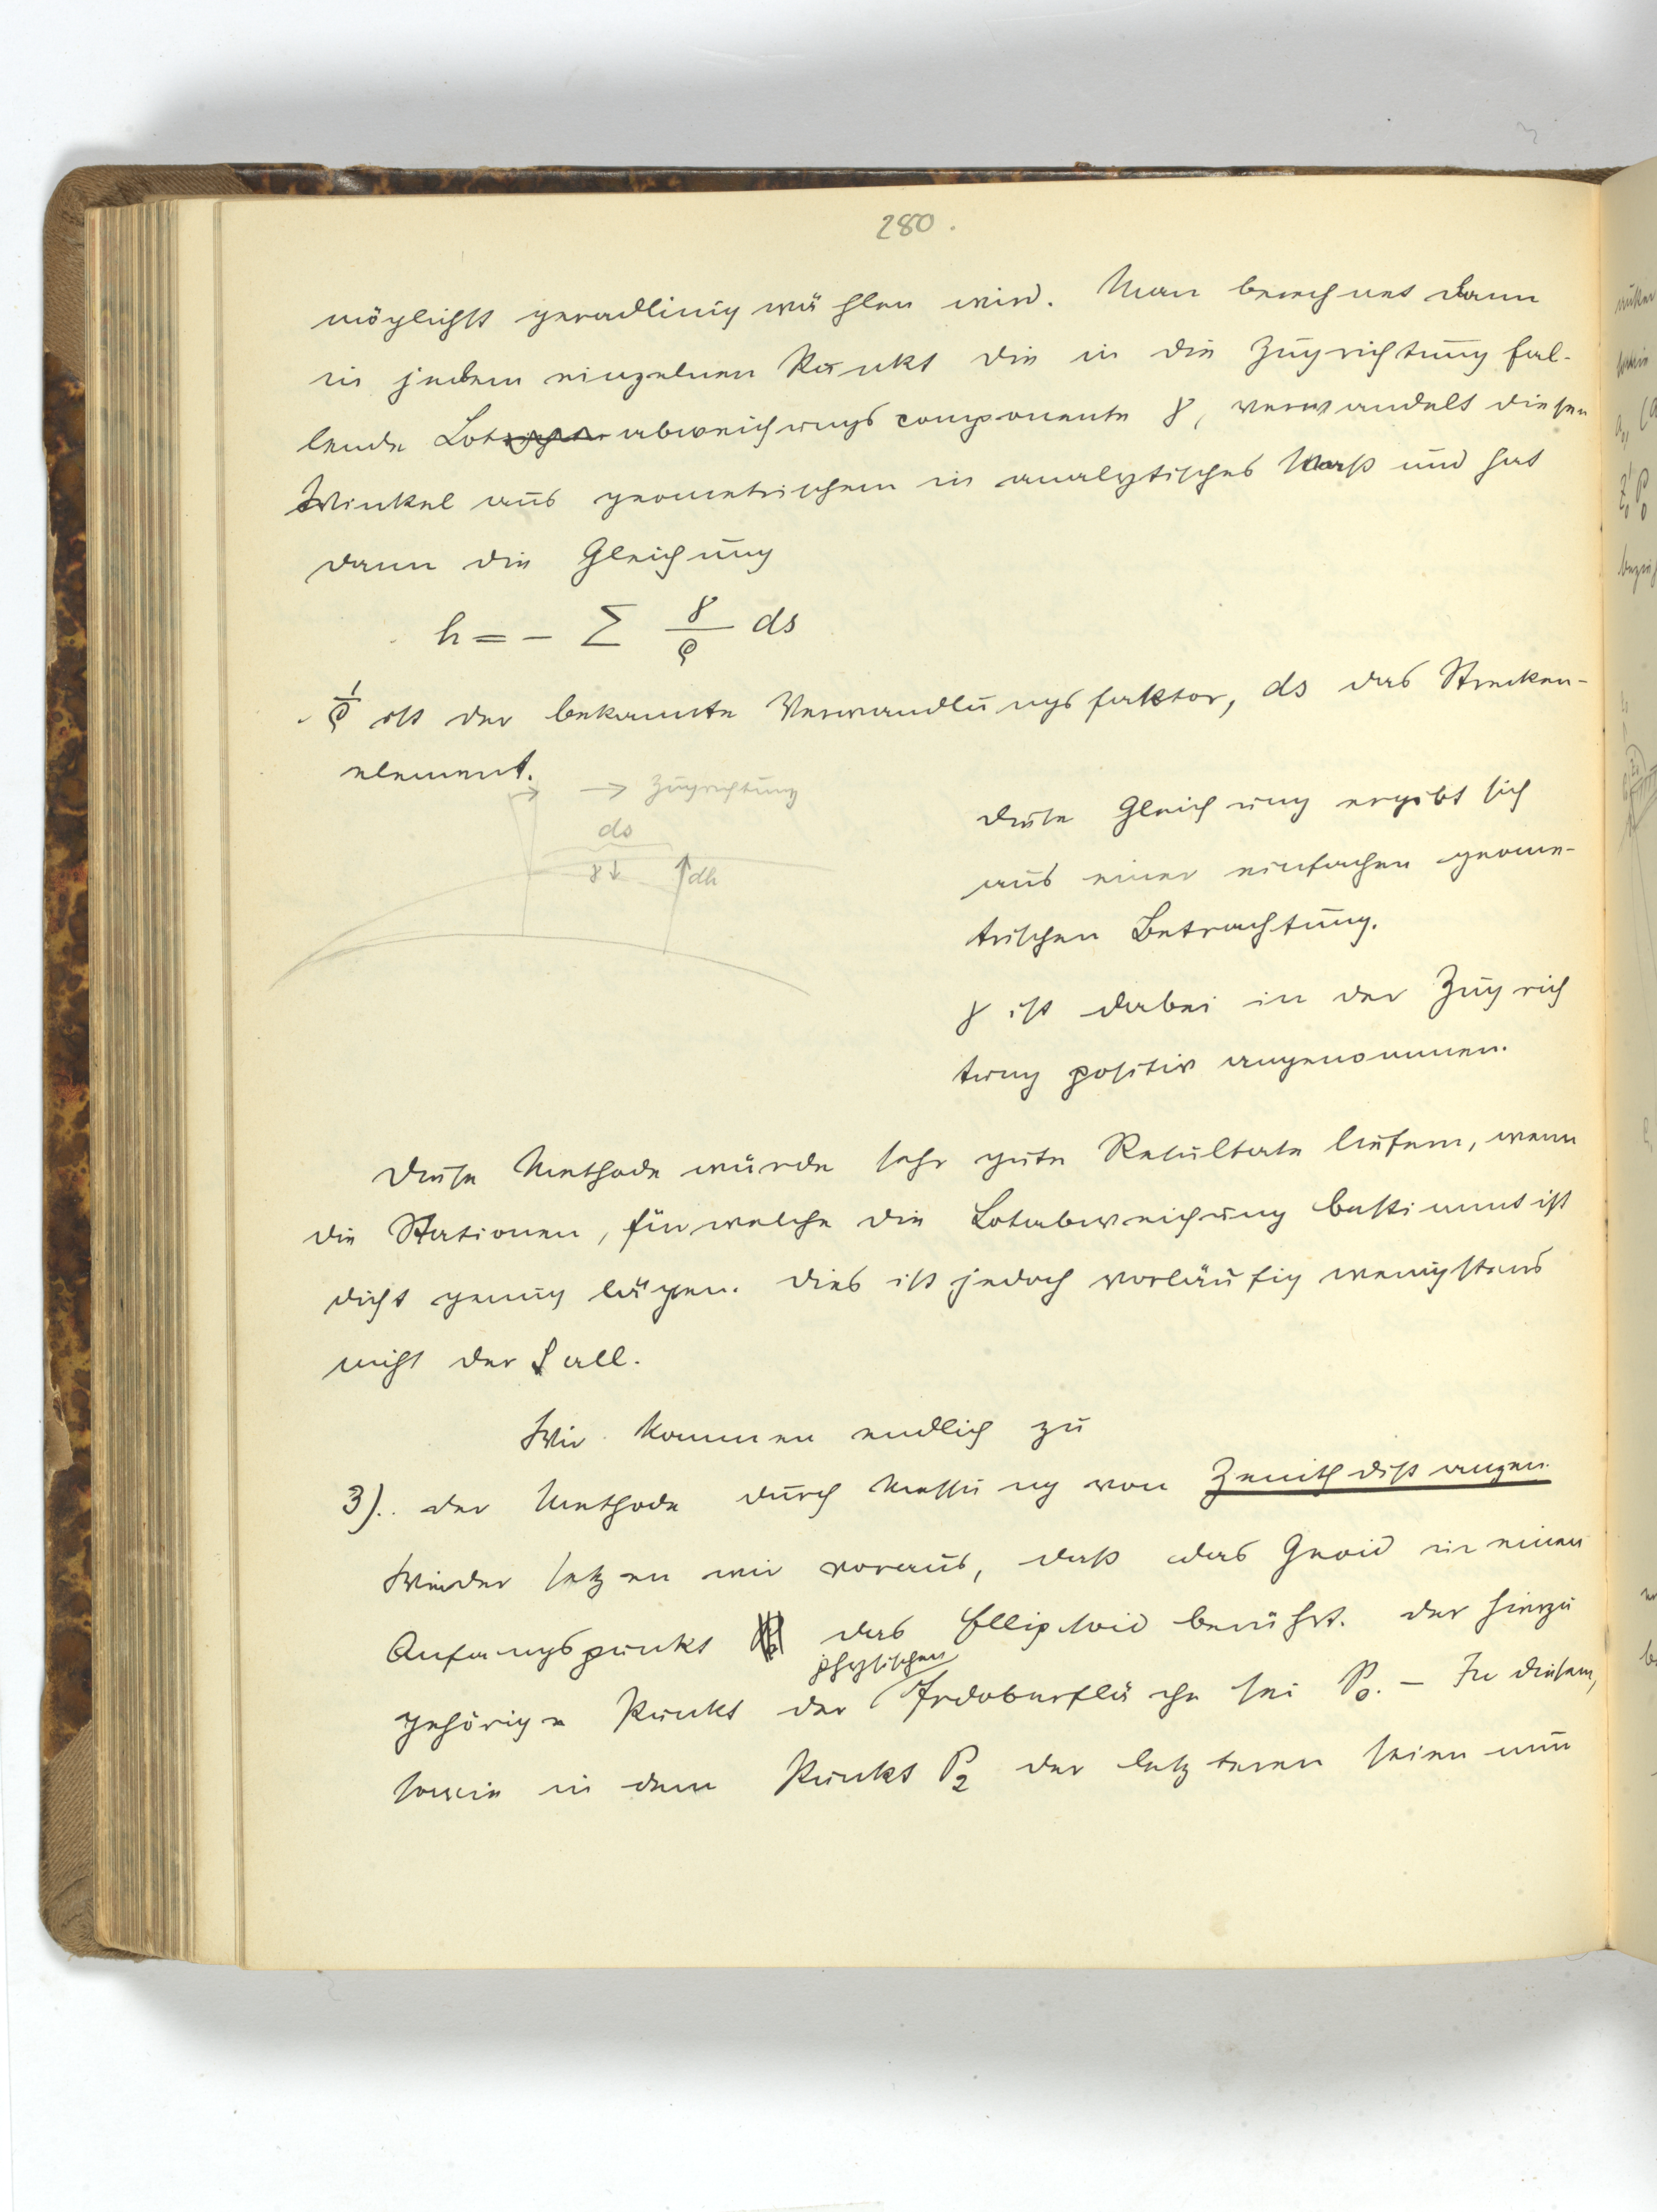 280.
möglichst geradlinig wählen wird. Man berechnet dann
in jedem einzelnen Punkt die in die Zugrichtung fal-
lende Lotabweichungscomponente γ, verwandelt diesen
Winkel aus geometrischem in analytisches Maß und hat
dann die Gleichung
h = - Σ γ/ϱ ds
1/ϱ ist der bekannte Verwandlungsfaktor, ds das Strecken-
element.
→ Zugrichtung
ds
γ↓ ↑dh
Diese Gleichung ergibt sich
aus einer einfachen geome-
trischen Betrachtung.
γ ist dabei in der Zugrich
tung positiv angenommen.
Diese Methode würde sehr gute Resultate liefern, wenn
die Stationen, für welche die Lotabweichung bestimmt ist
dicht genug lägen. Dies ist jedoch vorläufig wenigstens
nicht der Fall.
Wir kommen endlich zu
3). der Methode durch Messung von Zenithdistanzen.
Wieder setzen wir voraus, daß das Geoid in einem
Anfangspunkt das Ellipsoid berührt. Der hierzu
physischen
gehörige Punkt der Erdoberfläche sei P₀. – In diesem,
sowie in dem Punkt P₂ der letzteren seien nun